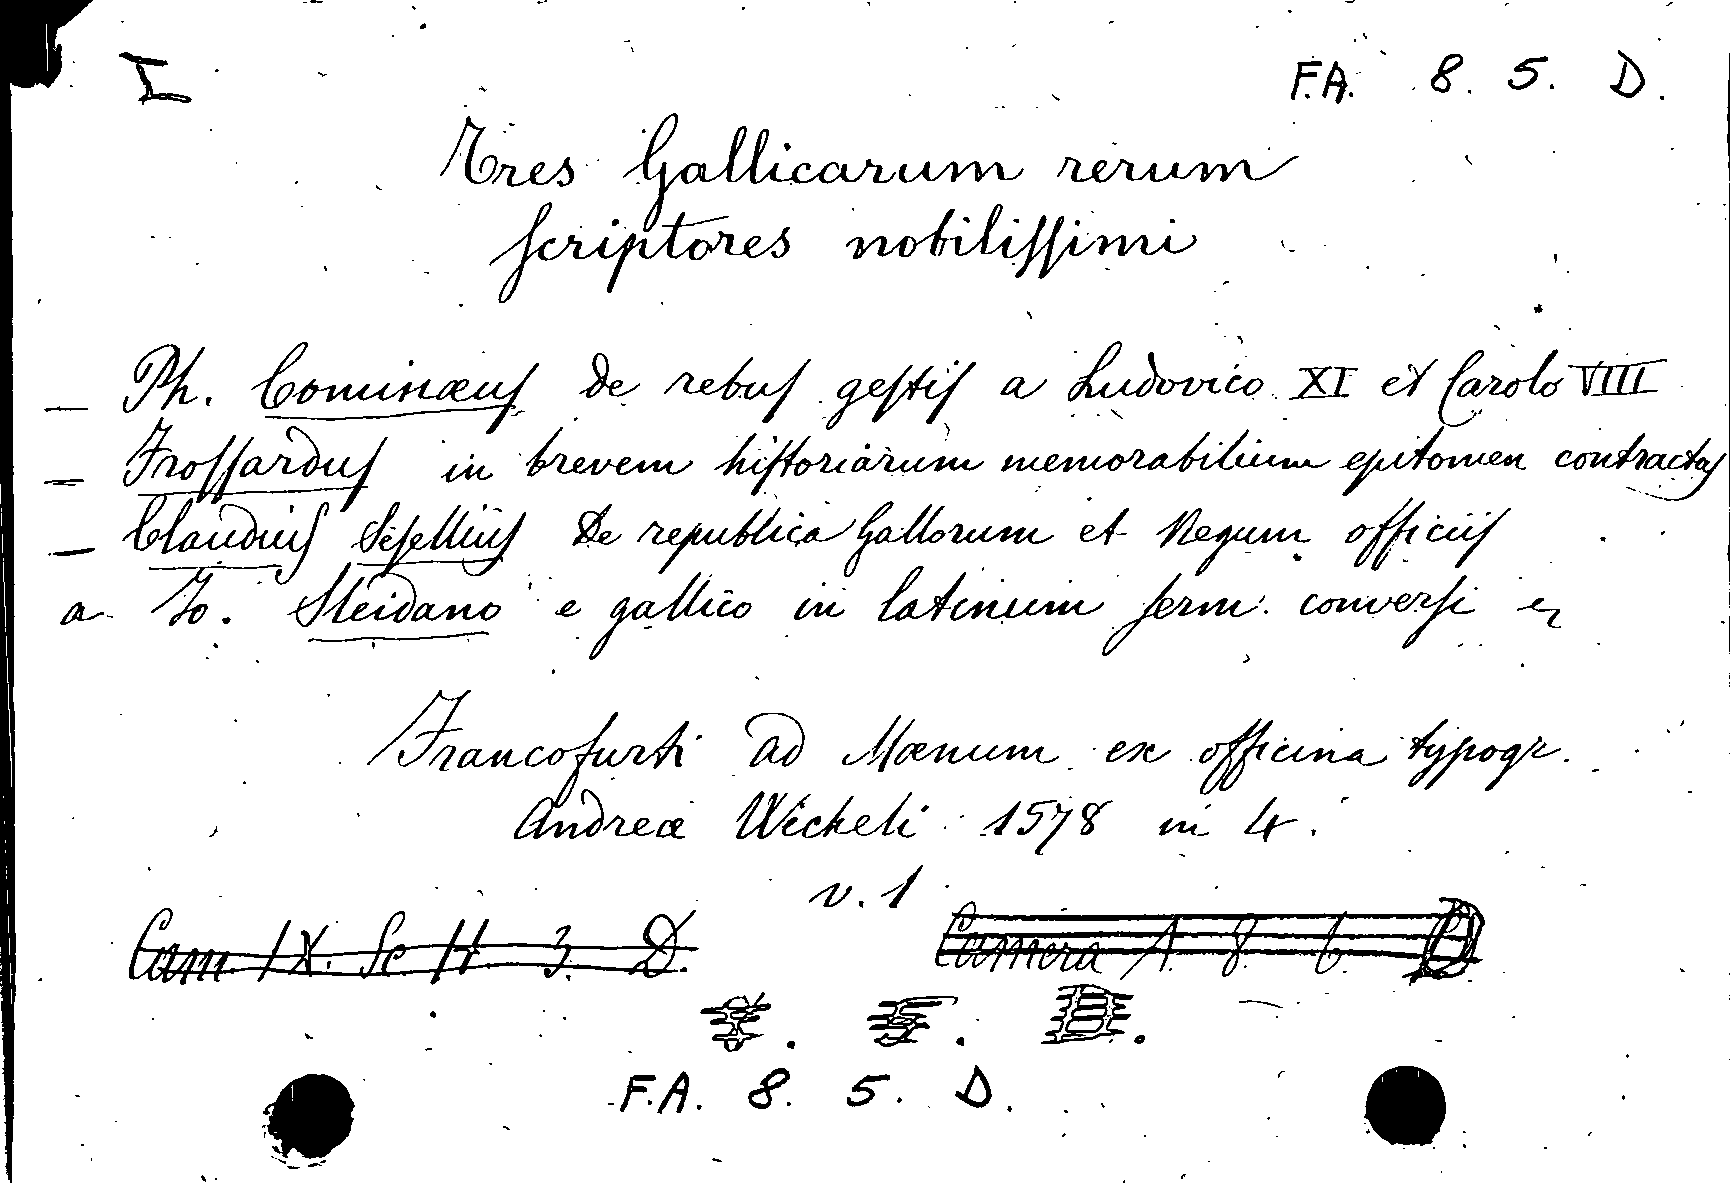 I F.A. 8. 5. D.
Tres Gallicarum rerum
scriptores nobilissimi
— Ph. Cominæus de rebus gestis a Ludovico XI et Carolo VIII
— Frossardus in brevem historiarum memorabilium epitomen contractus
— Claudius Sesellius de republica Gallorum et Regum officiis
a Jo. Sleidano e gallico in latinum serm. conversi
Francofurti ad Mœnum ex officina typogr.
Andreæ Wickeli 1578 in 4.
v. 1
Cam. IX. Sc H. 3. D. Camera A. 8. 6. D
F.A. 8. 5. D.